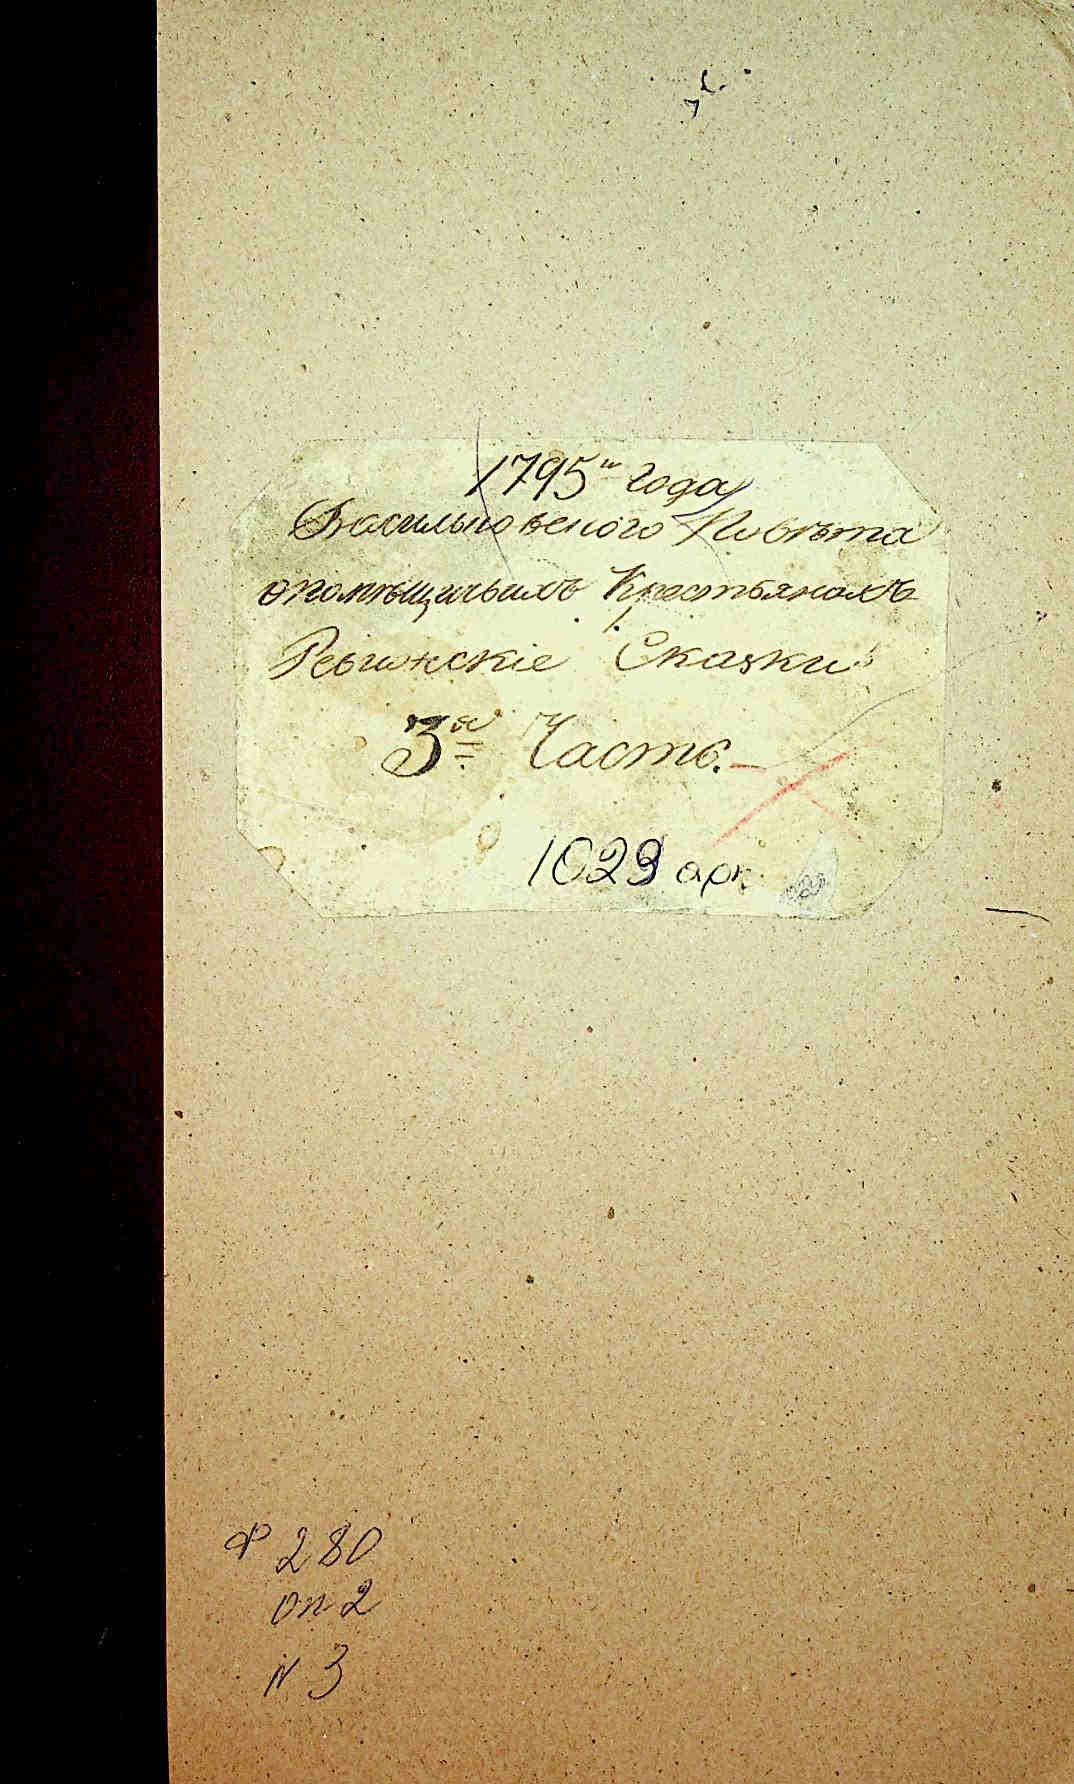 1795го года
Васильковского Повѣта
о помѣщичьихъ Крестьянахъ
Ревижскіе Сказки
3я Часть.
1029 арк
Ф 280
оп 2
N 3